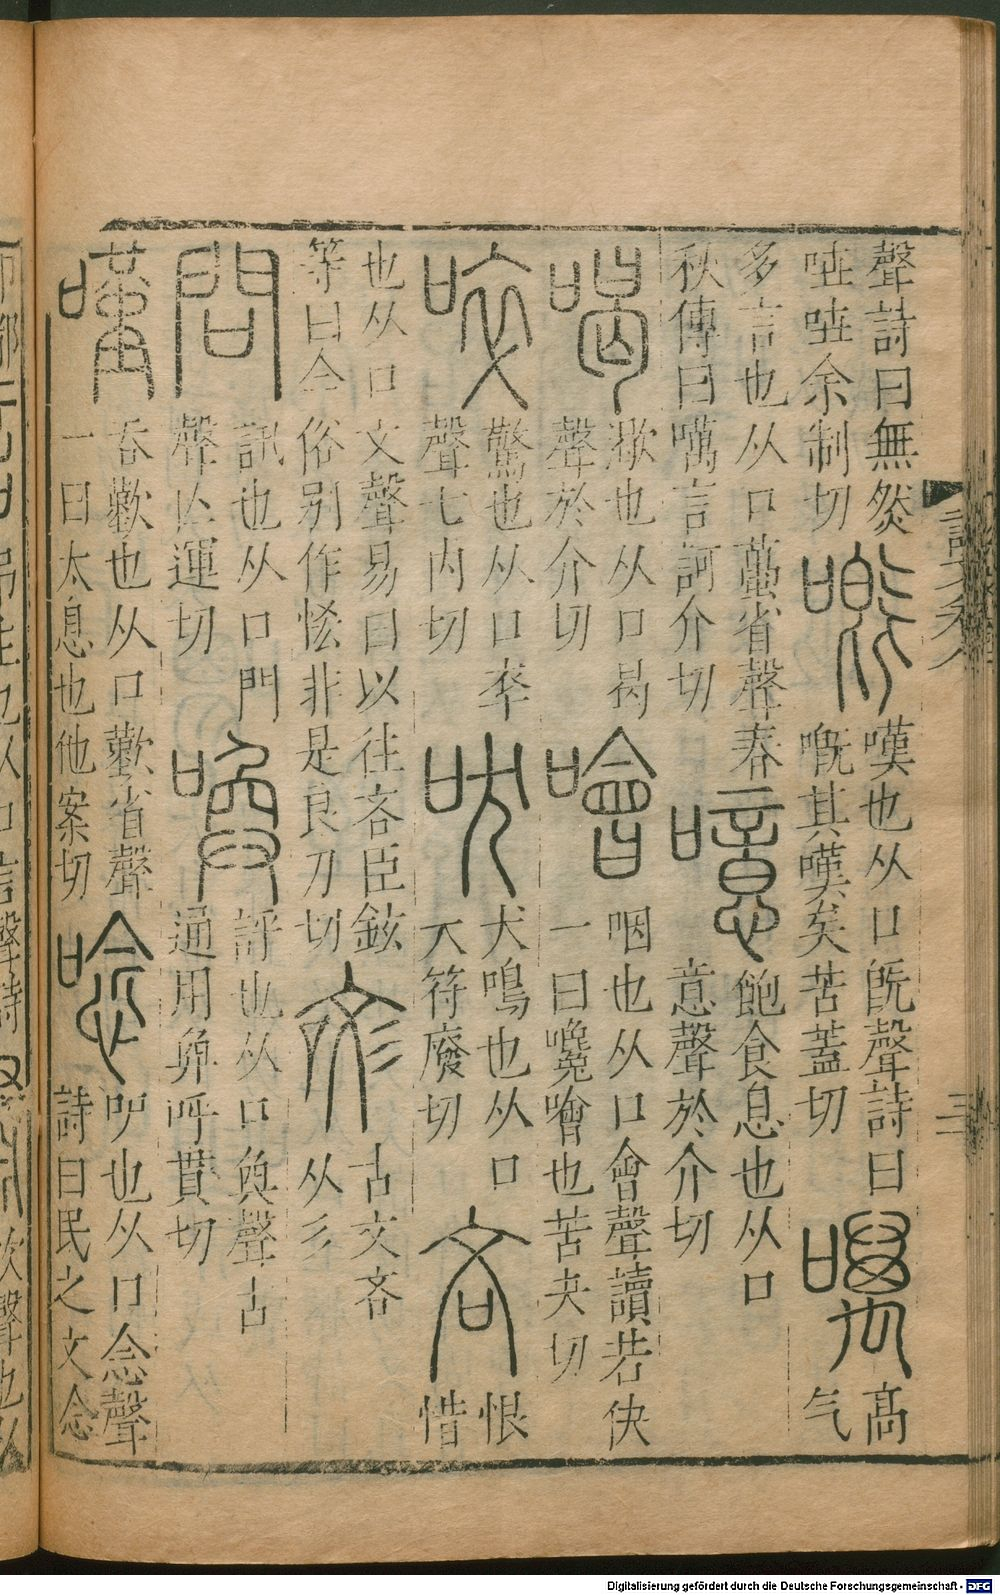 聲詩曰無然
呭呭余制切
嘅
嘆也从口旣聲詩曰
嘅其嘆矣苦葢切
噧
高
气
多言也从口蠆省聲春
秋傳曰噧言訶介切
噫
飽食息也从口
意聲於介切
喝
㵣也从口曷
聲於介切
噲
咽也从口會聲讀若快
一曰嚵噲也苦夬切
啐
驚也从口卒
聲七内切
吠
犬鳴也从口
犬符廢切
吝
恨
惜
也从口文聲易曰以往吝臣鉉
等曰今俗别作恡非是良刀切
㖁
古文吝
从彣
問
訊也从口門
聲亾運切
喚
評也从口奐聲古
通用奐呼貫切
嘆
吞歎也从口歎省聲
一曰太息也他案切
唸
㕧也从口念聲
詩曰民之文念
三
Digitalisierung gefördert durch die Deutsche Forschungsgemeinschaft - DFG